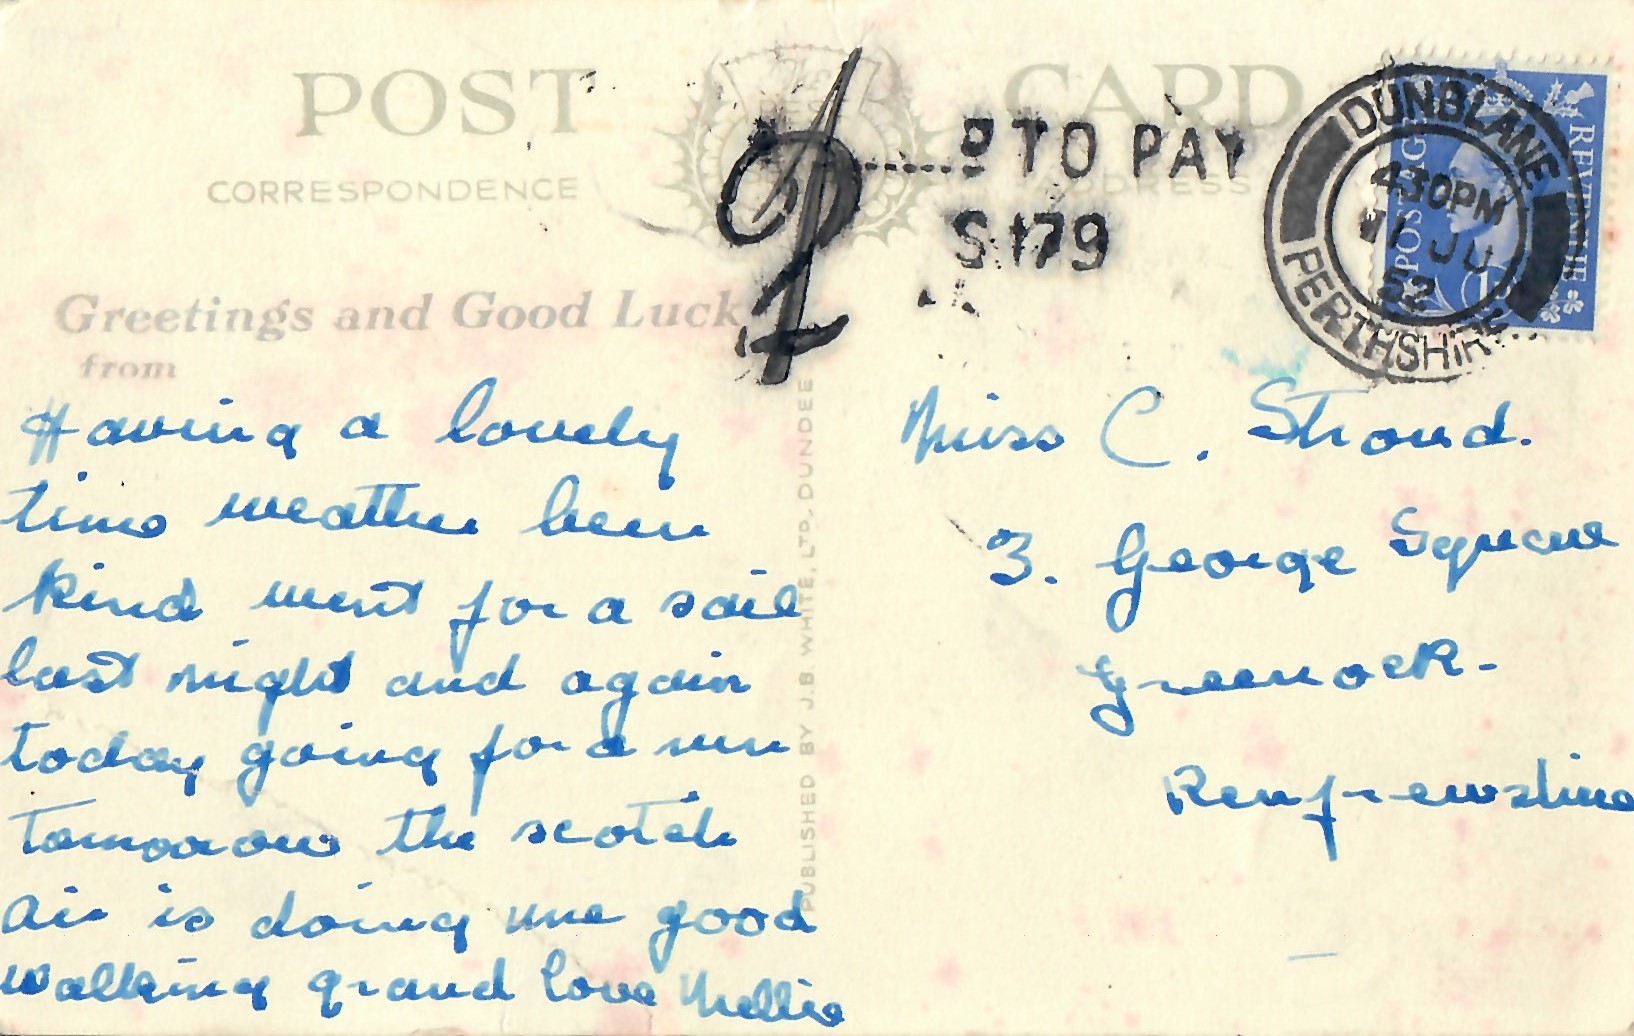 POST CARD
CORRESPONDENCE
ADDRESS
BEST
TO PAY
S.179
DUNBLANE
4 30PM
11 JU
52
PERTHSHIRE
POSTAGE
REVENUE
Greetings and Good Luck
from
Having a lovely
time weather been
kind went for a sail
last night and again
today going for a run
tomorrow the scotch
air is doing me good
walking grand love Nellie
PUBLISHED BY J.B. WHITE, LTD., DUNDEE
Miss C. Stroud.
3. George Square
Greenock-
Renfrewshire